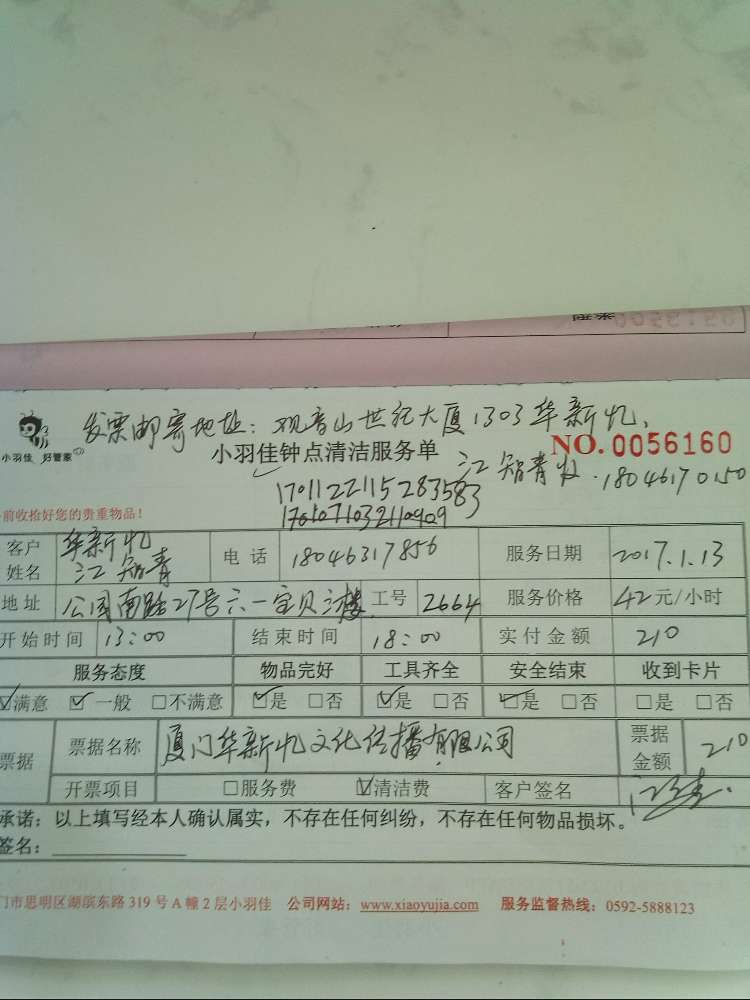 发票邮寄地址：观音山世纪大厦1303华新忆、
小羽佳 好管家
小羽佳钟点清洁服务单
NO.0056160
江智青收.18046170150
17011221152835​83
170107103211​0909
前收拾好您的贵重物品！
客户姓名 华新忆 江智青 电话 18046317856 服务日期 2017.1.13
地址 公园南路27号六一宝贝 楼 工号 2664 服务价格 42元/小时
开始时间 13:00 结束时间 18:00 实付金额 210
服务态度 物品完好 工具齐全 安全结束 收到卡片
☑满意 ☑一般 □不满意 ☑是 □否 ☑是 □否 ☑是 □否 □是 □否
票据 票据名称 厦门华新忆文化传播有限公司 票据金额 210
开票项目 □服务费 ☑清洁费 客户签名
承诺：以上填写经本人确认属实，不存在任何纠纷，不存在任何物品损坏。
签名：
门市思明区湖滨东路319号A幢2层小羽佳 公司网站：www.xiaoyujia.com 服务监督热线：0592-5888123